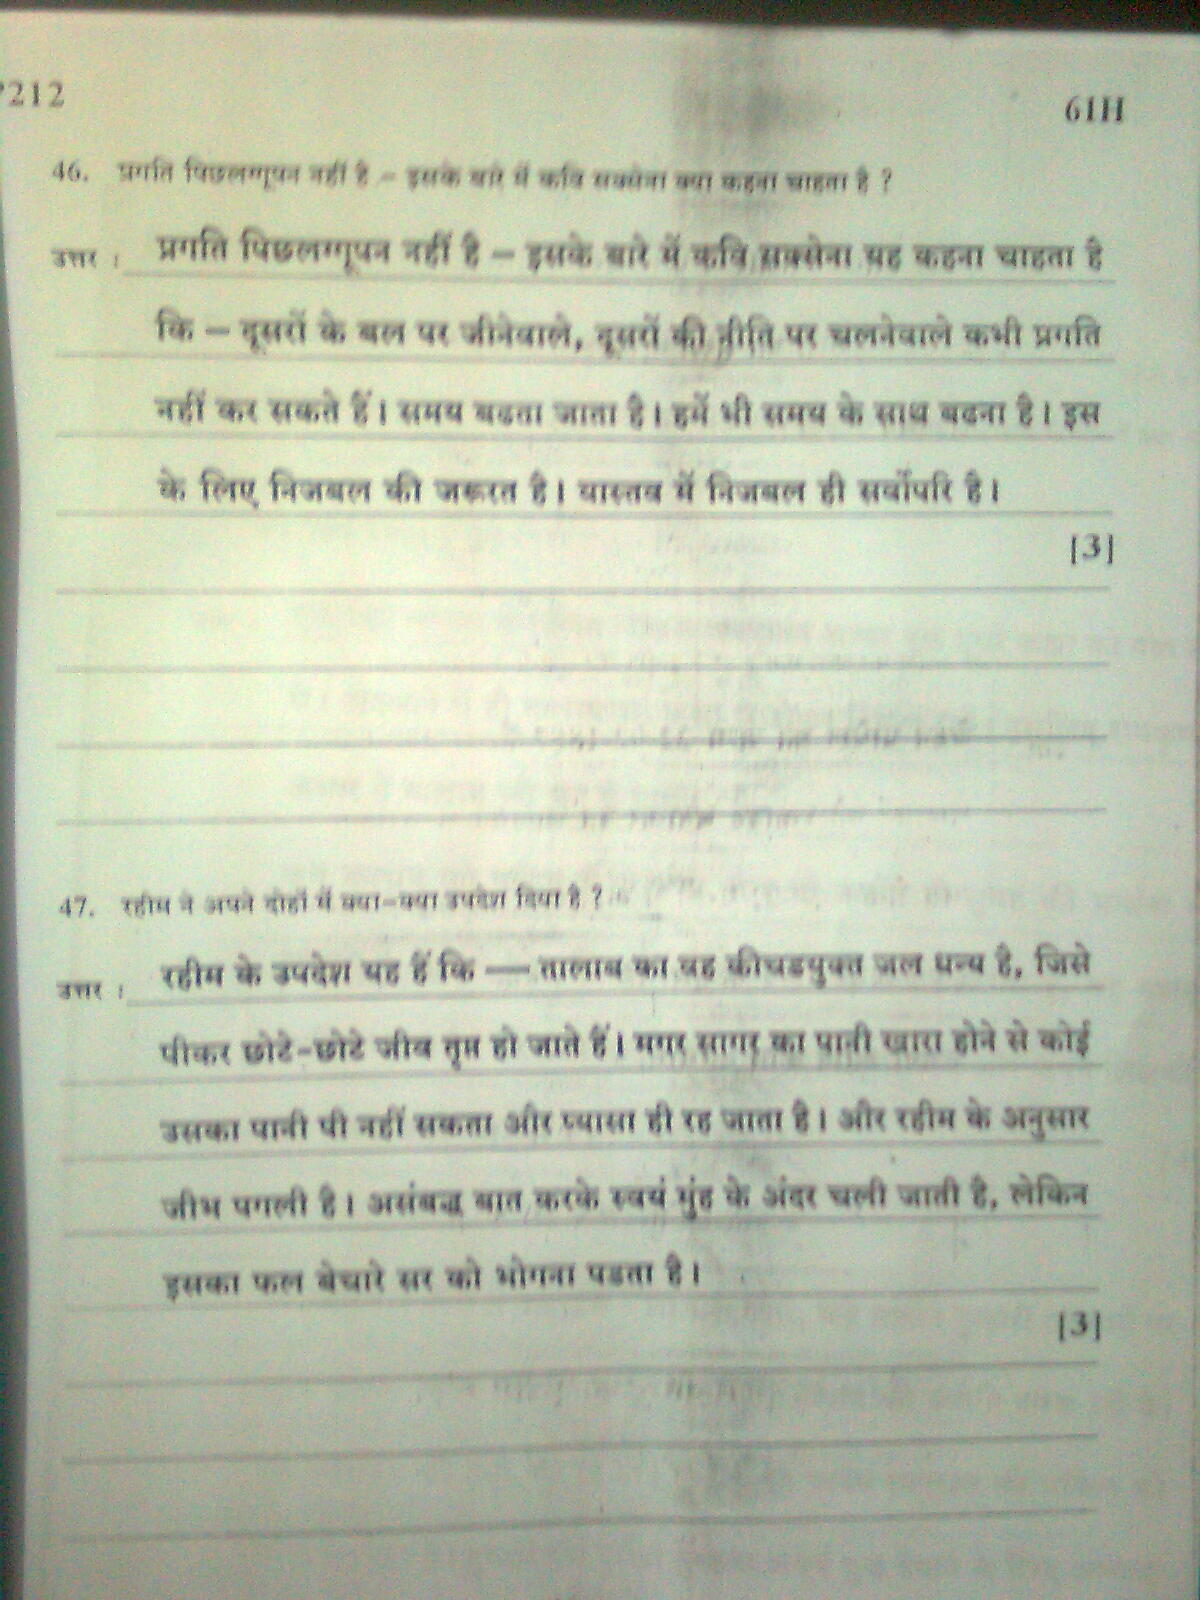 212
61H
46. प्रगति पिछलग्गूपन नहीं है – इसके बारे में कवि सक्सेना क्या कहना चाहता है ?
उत्तर : प्रगति पिछलग्गूपन नहीं है – इसके बारे में कवि सक्सेना यह कहना चाहता है
कि – दूसरों के बल पर जीनेवाले, दूसरों की नीति पर चलनेवाले कभी प्रगति
नहीं कर सकते हैं। समय बढता जाता है। हमें भी समय के साथ बढना है। इस
के लिए निजबल की जरूरत है। वास्तव में निजबल ही सर्वोपरि है।
[3]
47. रहीम ने अपने दोहों में क्या-क्या उपदेश दिया है ?
उत्तर : रहीम के उपदेश यह हैं कि — तालाब का वह कीचडयुक्त जल धन्य है, जिसे
पीकर छोटे-छोटे जीव तृप्त हो जाते हैं। मगर सागर का पानी खारा होने से कोई
उसका पानी पी नहीं सकता और प्यासा ही रह जाता है। और रहीम के अनुसार
जीभ पगली है। असंबद्ध बात करके स्वयं मुंह के अंदर चली जाती है, लेकिन
इसका फल बेचारे सर को भोगना पडता है।
[3]